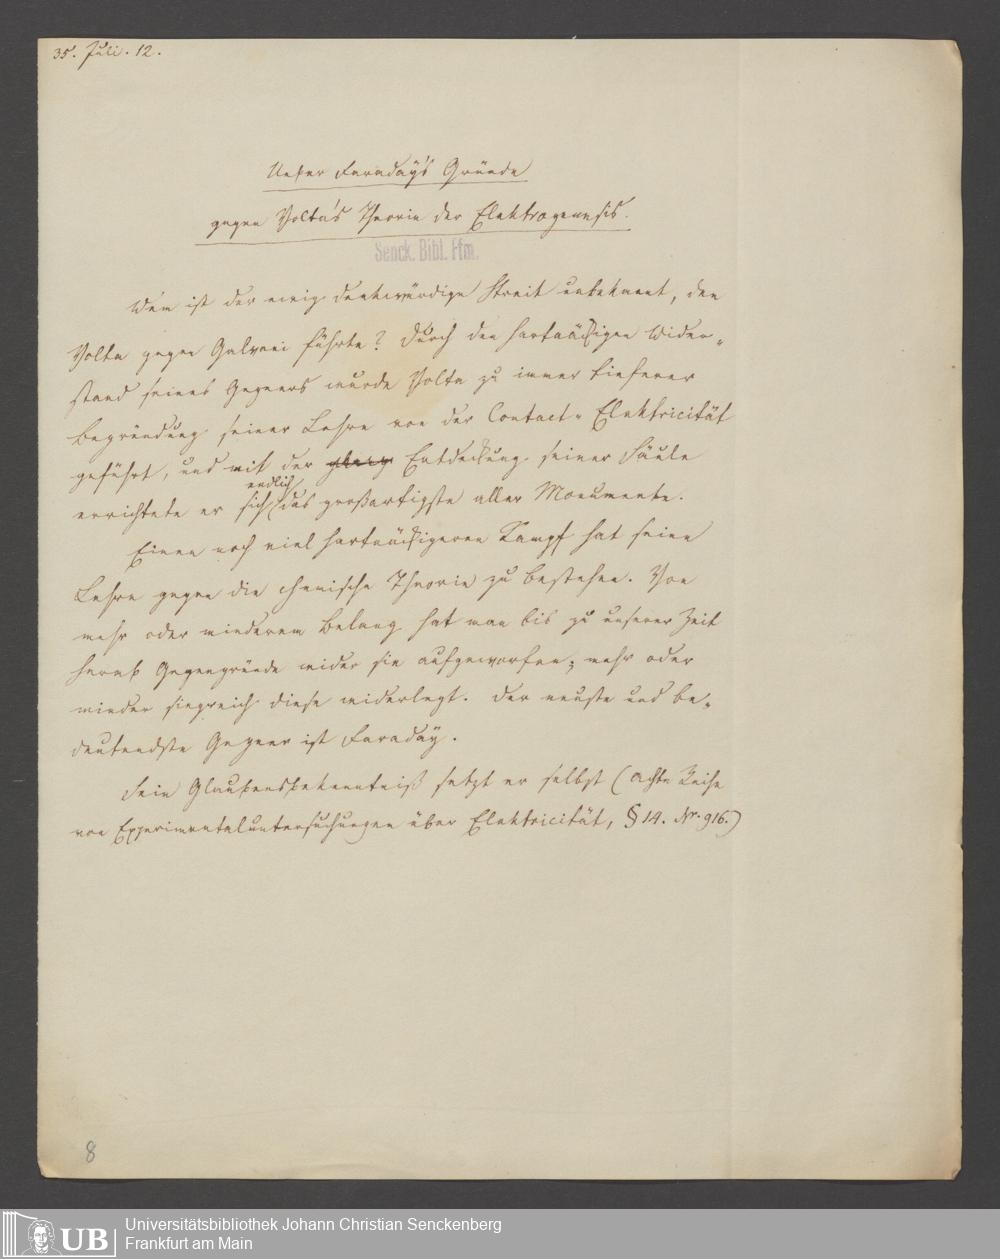 35. Juli. 12.
Ueber Faraday's Gründe
gegen Volta's Theorie der Elektrogenesis.
Senck. Bibl. Ffm.
Wem ist der ewig denkwürdige Streit unbekannt, den
Volta gegen Galvani führte? Durch den hartnäckigen Wider-
stand seines Gegners wurde Volta zu immer tieferer
Begründung seiner Lehre von der Contact-Elektricität
geführt, und mit der Entdeckung seiner Säule
endlich
errichtete er sich das großartigste aller Monumente.
Einen noch viel hartnäckigeren Kampf hat seine
Lehre gegen die chemische Theorie zu bestehen. Von
mehr oder minderem Belang hat man bis zu unserer Zeit
herab Gegengründe wider sie aufgeworfen; mehr oder
minder siegreich diese widerlegt. Der neuste und be-
deutendste Gegner ist Faraday.
Sein Glaubensbekenntniß setzt er selbst (achte Reihe
von Experimentaluntersuchungen über Elektricität, § 14. Nr. 916.)
8
UB
Universitätsbibliothek Johann Christian Senckenberg
Frankfurt am Main